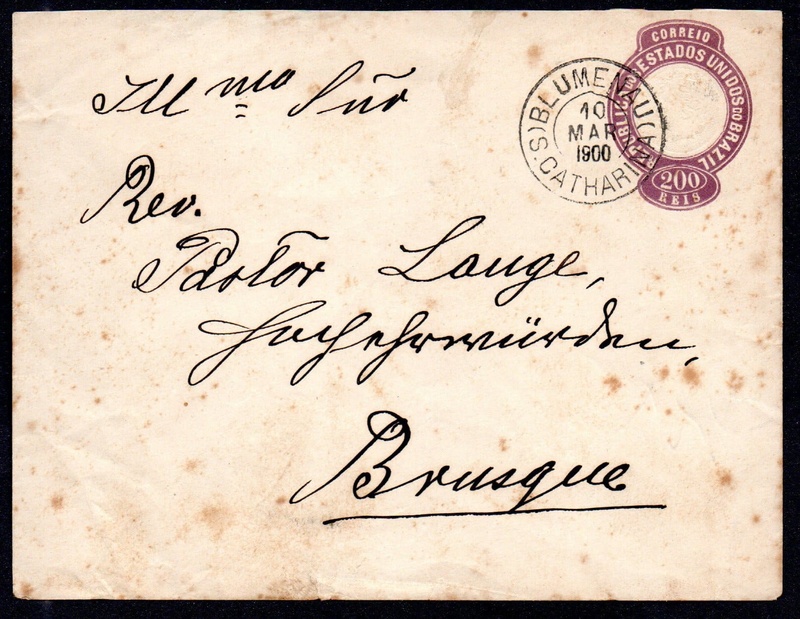 CORREIO
REPUBLICA DOS ESTADOS UNIDOS DO BRAZIL
200
REIS
BLUMENAU
10
MAR
1900
(S. CATHARINA)
Illmo Snr
Rev.
Pastor Lange,
Hochehrwürden,
Brusque